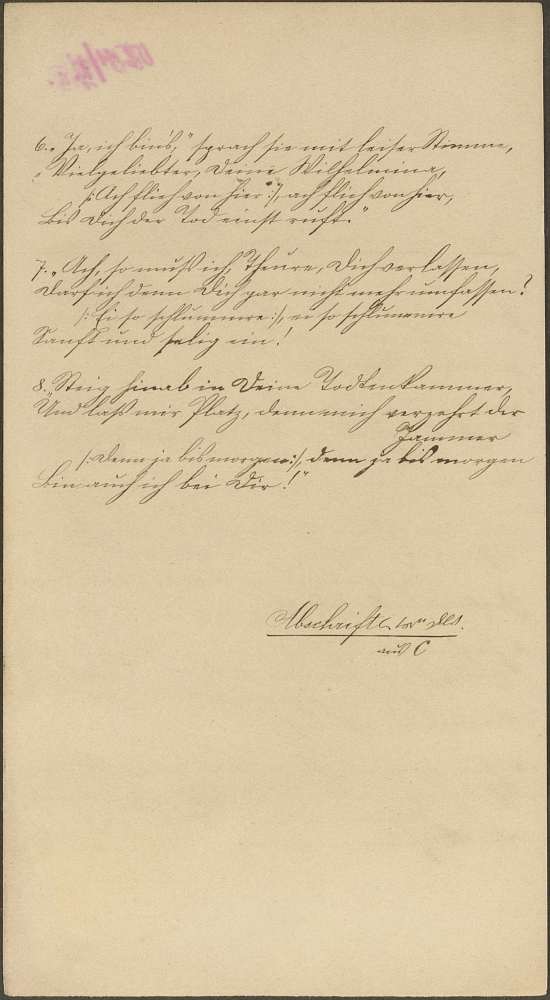 6. „Ja, ich bin's," sprach sie mit leiser Stimme,
„Vielgeliebter, Deine Wilhelmina,
/: Ach flieh von hier :/, ach flieh von hier,
Bis Dich der Tod einst ruft."
7. „Ach, so muß ich, Theure, Dich verlassen,
Darf ich denn Dich gar nicht mehr umfassen?
/: Ei so schlummre :/, ei so schlummre
Sanft und selig ein!
8. „Steig hinab in Deine Todtenkammer,
Und laß mir Platz, denn mich verzehrt der
Jammer
/: Denn ja bis morgen :/, denn ja bis morgen
Bin auch ich bei Dir!"
Abschrift
aus C